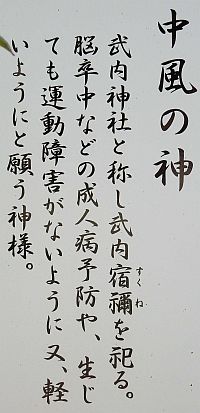 中風の神
武内神社と称し武内宿禰を祀る。
すくね
脳卒中などの成人病予防や、生じ
ても運動障害がないように又、軽
いようにと願う神様。